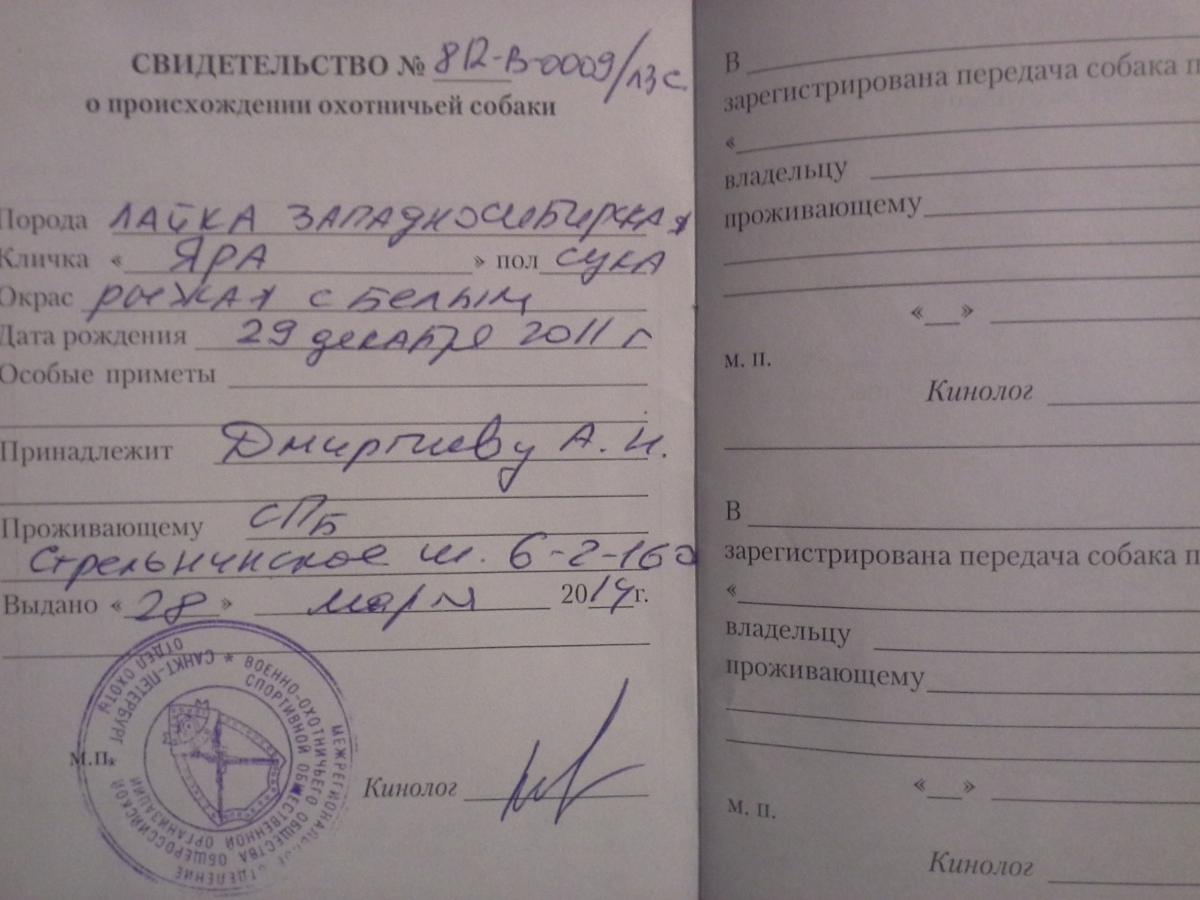 СВИДЕТЕЛЬСТВО №
о происхождении охотничьей собаки
Порода ЛАЙКА ЗАПАДНОСИБИРСКАЯ
Кличка « ЯРА » пол СУКА
Окрас РЫЖАЯ С БЕЛЫМ
Дата рождения 29 декабря 2011 г
Особые приметы
Принадлежит Дмитриеву А. Н.
Проживающему СПБ
Стрельнинское ш. 6-2-160
Выдано « 28 » марта 2014 г.
м.п.
Кинолог
МЕЖРЕГИОНАЛЬНОЕ ОТДЕЛЕНИЕ
ВОЕННО-ОХОТНИЧЬЕГО ОБЩЕСТВА ОБЩЕРОССИЙСКОЙ
СПОРТИВНОЙ ОБЩЕСТВЕННОЙ ОРГАНИЗАЦИИ
* САНКТ-ПЕТЕРБУРГ
ОТДЕЛ ОХОТЫ
В
зарегистрирована передача собака п
«
владельцу
проживающему
«__»
м. п.
Кинолог
В
зарегистрирована передача собака п
«
владельцу
проживающему
«__»
м. п.
Кинолог